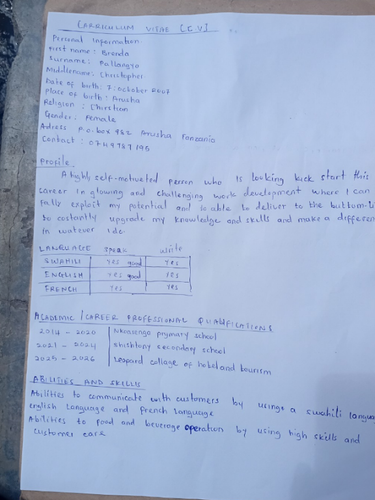 CARRICULUM VITAE [C.V]
Personal information
First name : Brenda
Surname : Pallangyo
Middlename : Christopher
Date of birth : 7 : October
Place of birth : Arusha
Religion : Christian
Gender : Female
Adress P.O.box 982 Arusha Tanzania
Contact :
Profile
A highly self-motivated person who is looking kick start this
career in glowing and challenging work development where I can
fully exploit my potential and to able to deliver to the buttom-li
to costantly upgrade my knowledge and skills and make a differen
in watever I do
LANGUAGE Speak Write
SWAHILI YES good YES
ENGLISH YES good YES
FRENCH YES YES
ACADEMIC /CAREER PROFESSIONAL QUALIFICATIONS
2014 - 2020 prymary school
2021 - 2024 secondary school
2025 - 2026 Leopard collage of hotel and tourism
ABILITIES AND SKILLS
Abilities to communicate with customers by using a swahili langua
english language and french language
Abilities to food and beverage operation by using high skills and
customer care